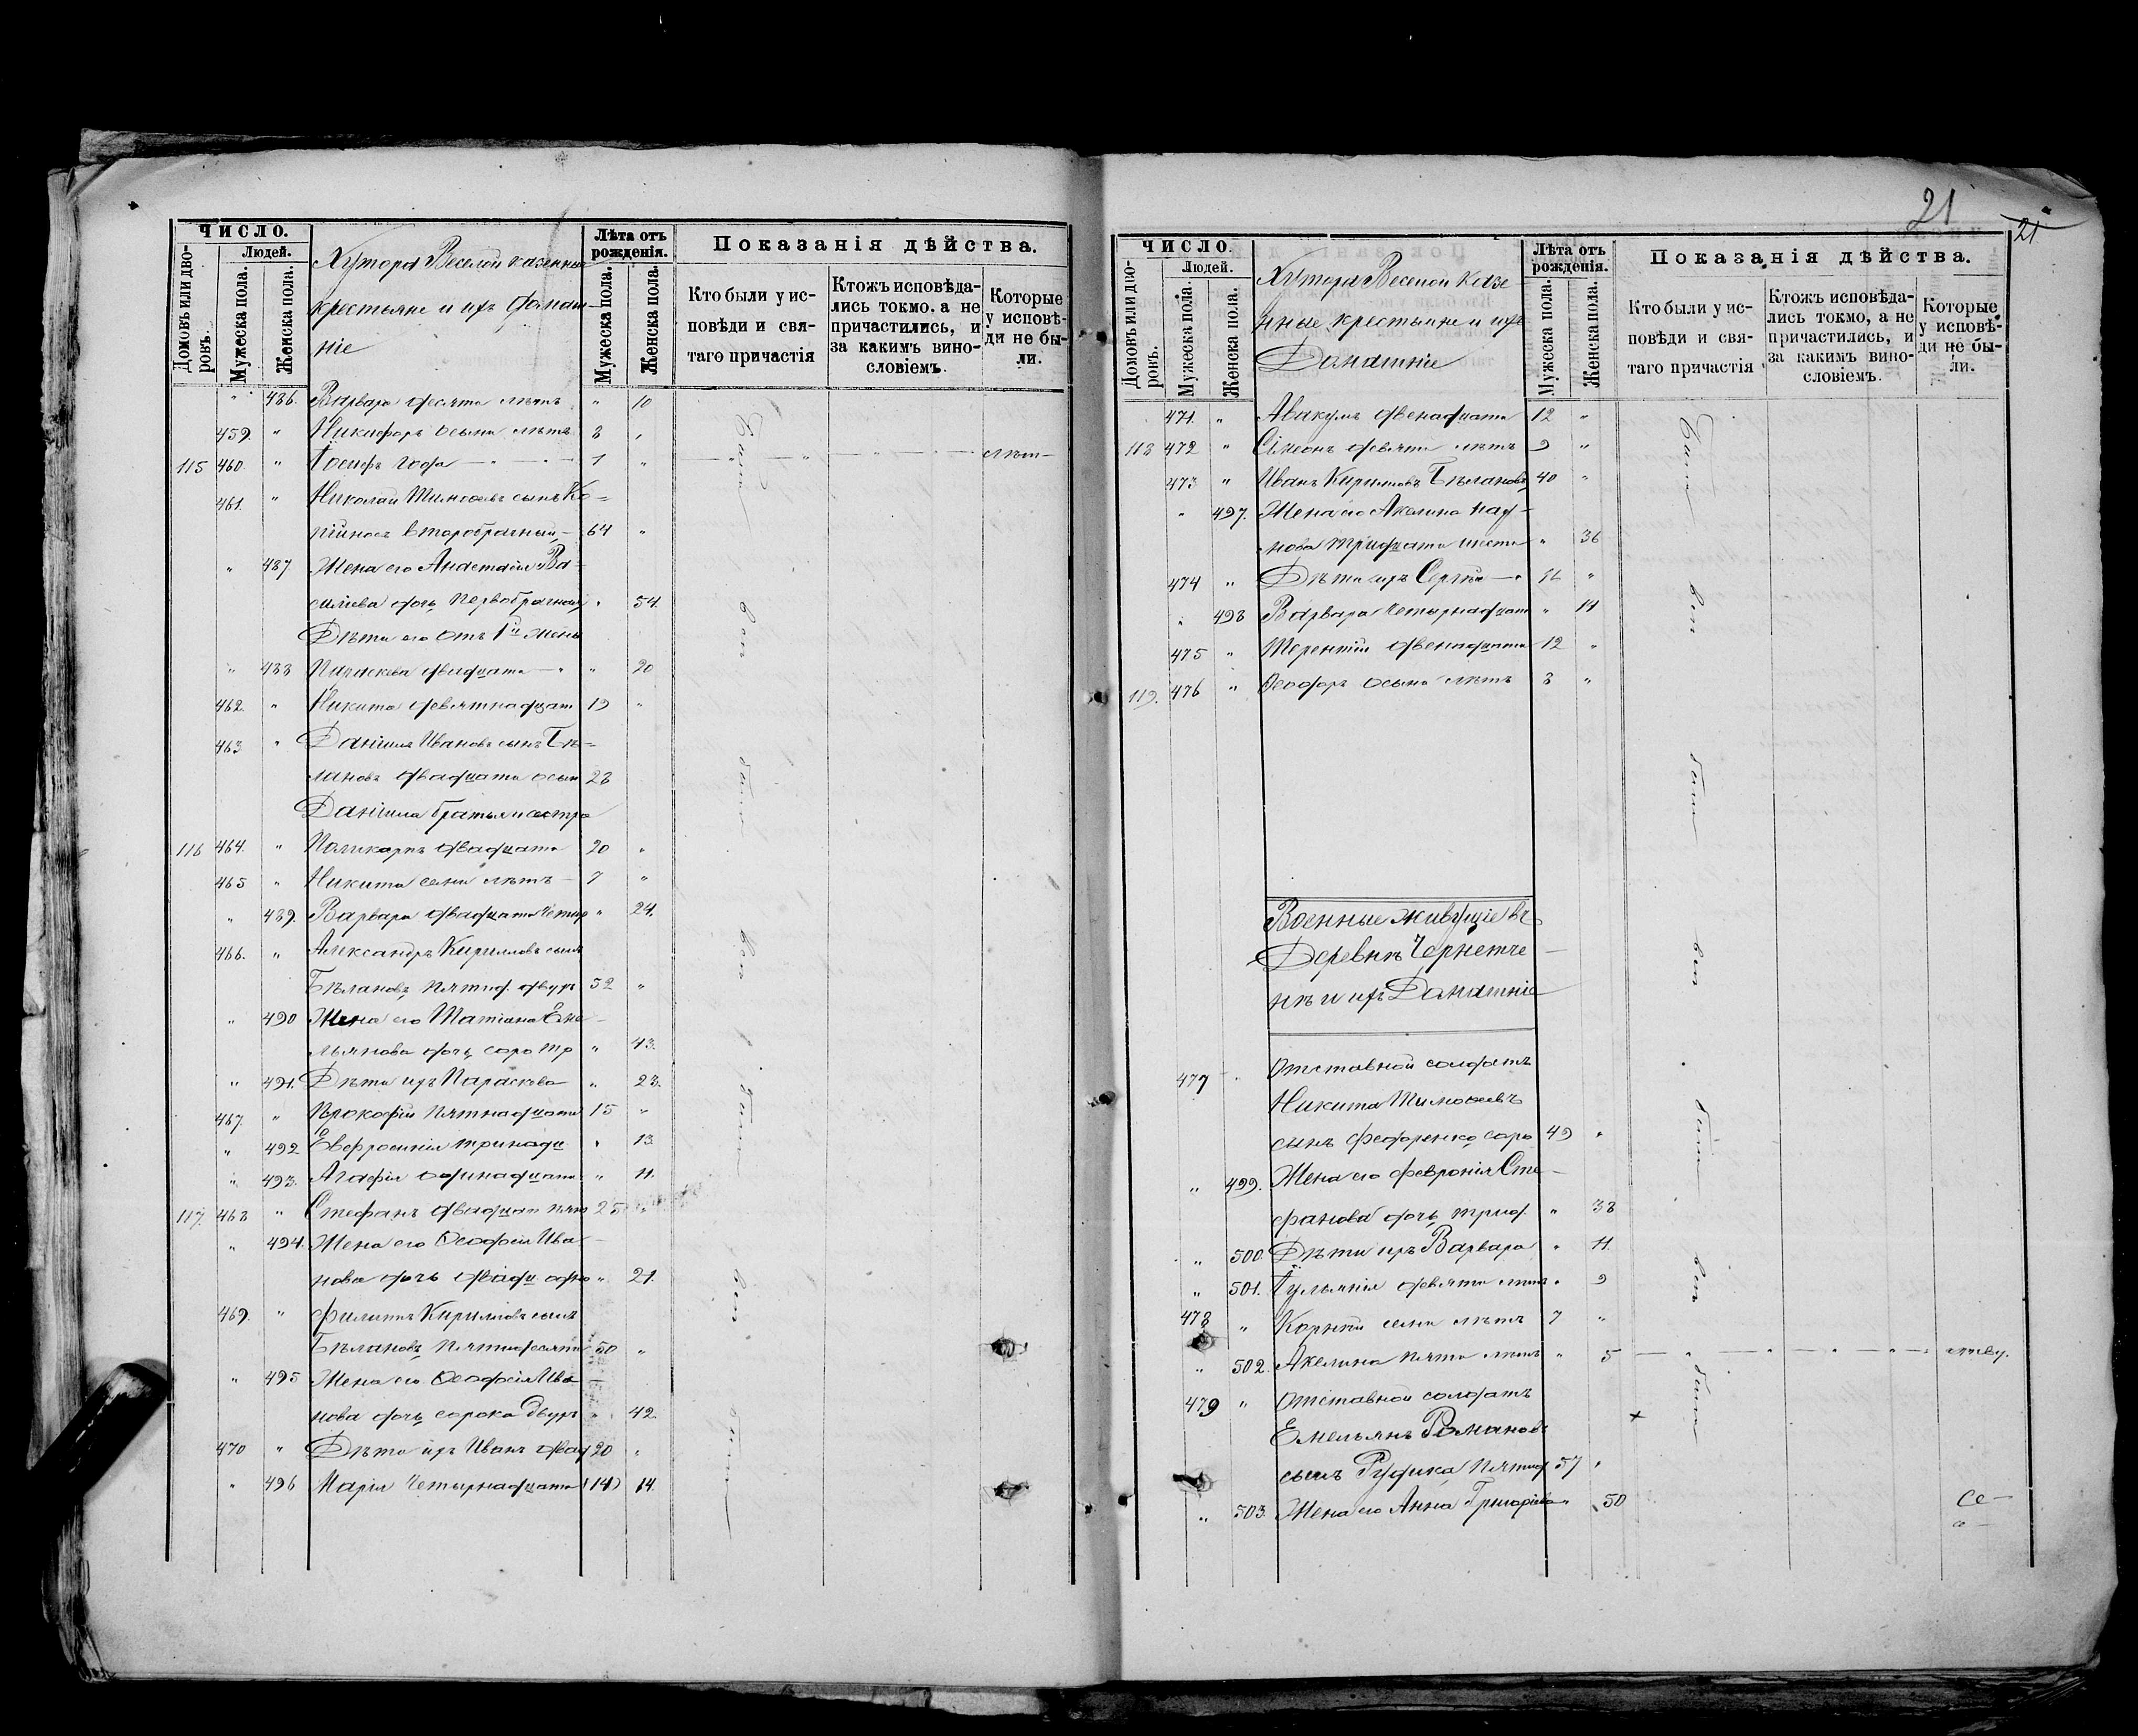 ЧИСЛО.
Домовъ или дворовъ.
Людей.
Мужеска пола.
Женска пола.
Хутора Веселой казенные
крестьяне и ихъ домаш-
ніе
Лѣта отъ рожденія.
Мужеска пола.
Женска пола.
Показанія дѣйства.
Кто были у ис-
повѣди и свя-
таго причастія
Ктожъ исповѣда-
лись токмо. а не
причастились, и
за какимъ вино-
словіемъ.
Которые
у исповѣ-
ди не бы-
ли.
" 486. Варвара десяти лѣтъ " 10
459. " Никифоръ осьми лѣтъ 8 "
115 460. " Іосифъ года 1 "
461. " Николай Тимофеевъ сынъ
второбрачный 64 "
" 487 Жена его Анастасія Ва-
силіева дочь первобрачная " 54.
Дѣти его отъ 1й жены
" 488 Параскева двадцати " 20
462. " Никита девятнадцат 19 "
463 " Даніилъ Ивановъ сынъ Бѣ-
лановъ двадцати осьми 28
Даніила братья и сестра
116 464. " Поликарпъ двадцати 20 "
465 " Никита семи лѣтъ 7 "
" 489. Варвара двадцати четыр " 24.
466. " Александръ Кирилловъ сынъ
Бѣлановъ пятид. двухъ 52 "
" 490 Жена его Татіана Еме-
льянова дочь соро тр " 43.
" 491. Дѣти ихъ Параскева " 23.
467. " Прокофій пятнадцати 15 "
" 492 Евфросинія тринадц " 13
" 493. Агафія одинадцати " 11.
117. 468 " Стефанъ двадцат пят 25 "
" 494. Жена его Ѳеодосія Ива-
нова дочь двадц одно " 21.
469. " Филиппъ Кирилловъ сынъ
Бѣлановъ пятидесяти 50 "
" 495 Жена его Ѳеодосія Ива-
нова дочь сорока двухъ " 42.
470 " Дѣти ихъ Иванъ двад 20 "
" 496 Марія четырнадцати (14) 14.
21
21
ЧИСЛО.
Домовъ или дво-
ровъ.
Людей.
Мужеска пола.
Женска пола.
Хутора Веселой Казе-
нные крестьяне и ихъ
Домашніе
Лѣта отъ
рожденія.
Мужеска пола.
Женска пола.
Показанія дѣйства.
Кто были у ис-
повѣди и свя-
таго причастія
Ктожъ исповѣда-
лись токмо, а не
причастились, и
за какимъ вино-
словіемъ.
Которые
у исповѣ-
ди не бы-
ли.
471. " Авакумъ двенадцати 12 "
118 472 " Сімеонъ девяти лѣтъ 9 "
473 " Иванъ Кириловъ Бѣлановъ 40 "
" 497. Жена его Акелина Нау-
мова тридцати шести " 36
474 " Дѣти ихъ Сергій 16 "
" 498 Варвара четырнадцати " 14
475 " Терентій двенадцати 12 "
119. 476 " Ѳеодоръ осьми лѣтъ 8 "
Военные живущіе въ
Деревнѣ Чернетче-
нкѣ и ихъ Домашніе
477 " Отставной солдатъ
Никита Тимоѳеевъ
сынъ Федоренко соро 49 "
" 499. Жена его Февронія Сте-
фанова дочь трид. " 38
" 500. Дѣти ихъ Варвара " 11
" 501. Іуліанія девяти лѣтъ " 9
478 " Корній семи лѣтъ 7 "
" 502. Акелина пяти лѣтъ " 5
479 " Отставной солдатъ
Емельянъ Романовъ
сынъ Рудика пятид 57 "
" 503. Жена его Анна Григоріева " 50